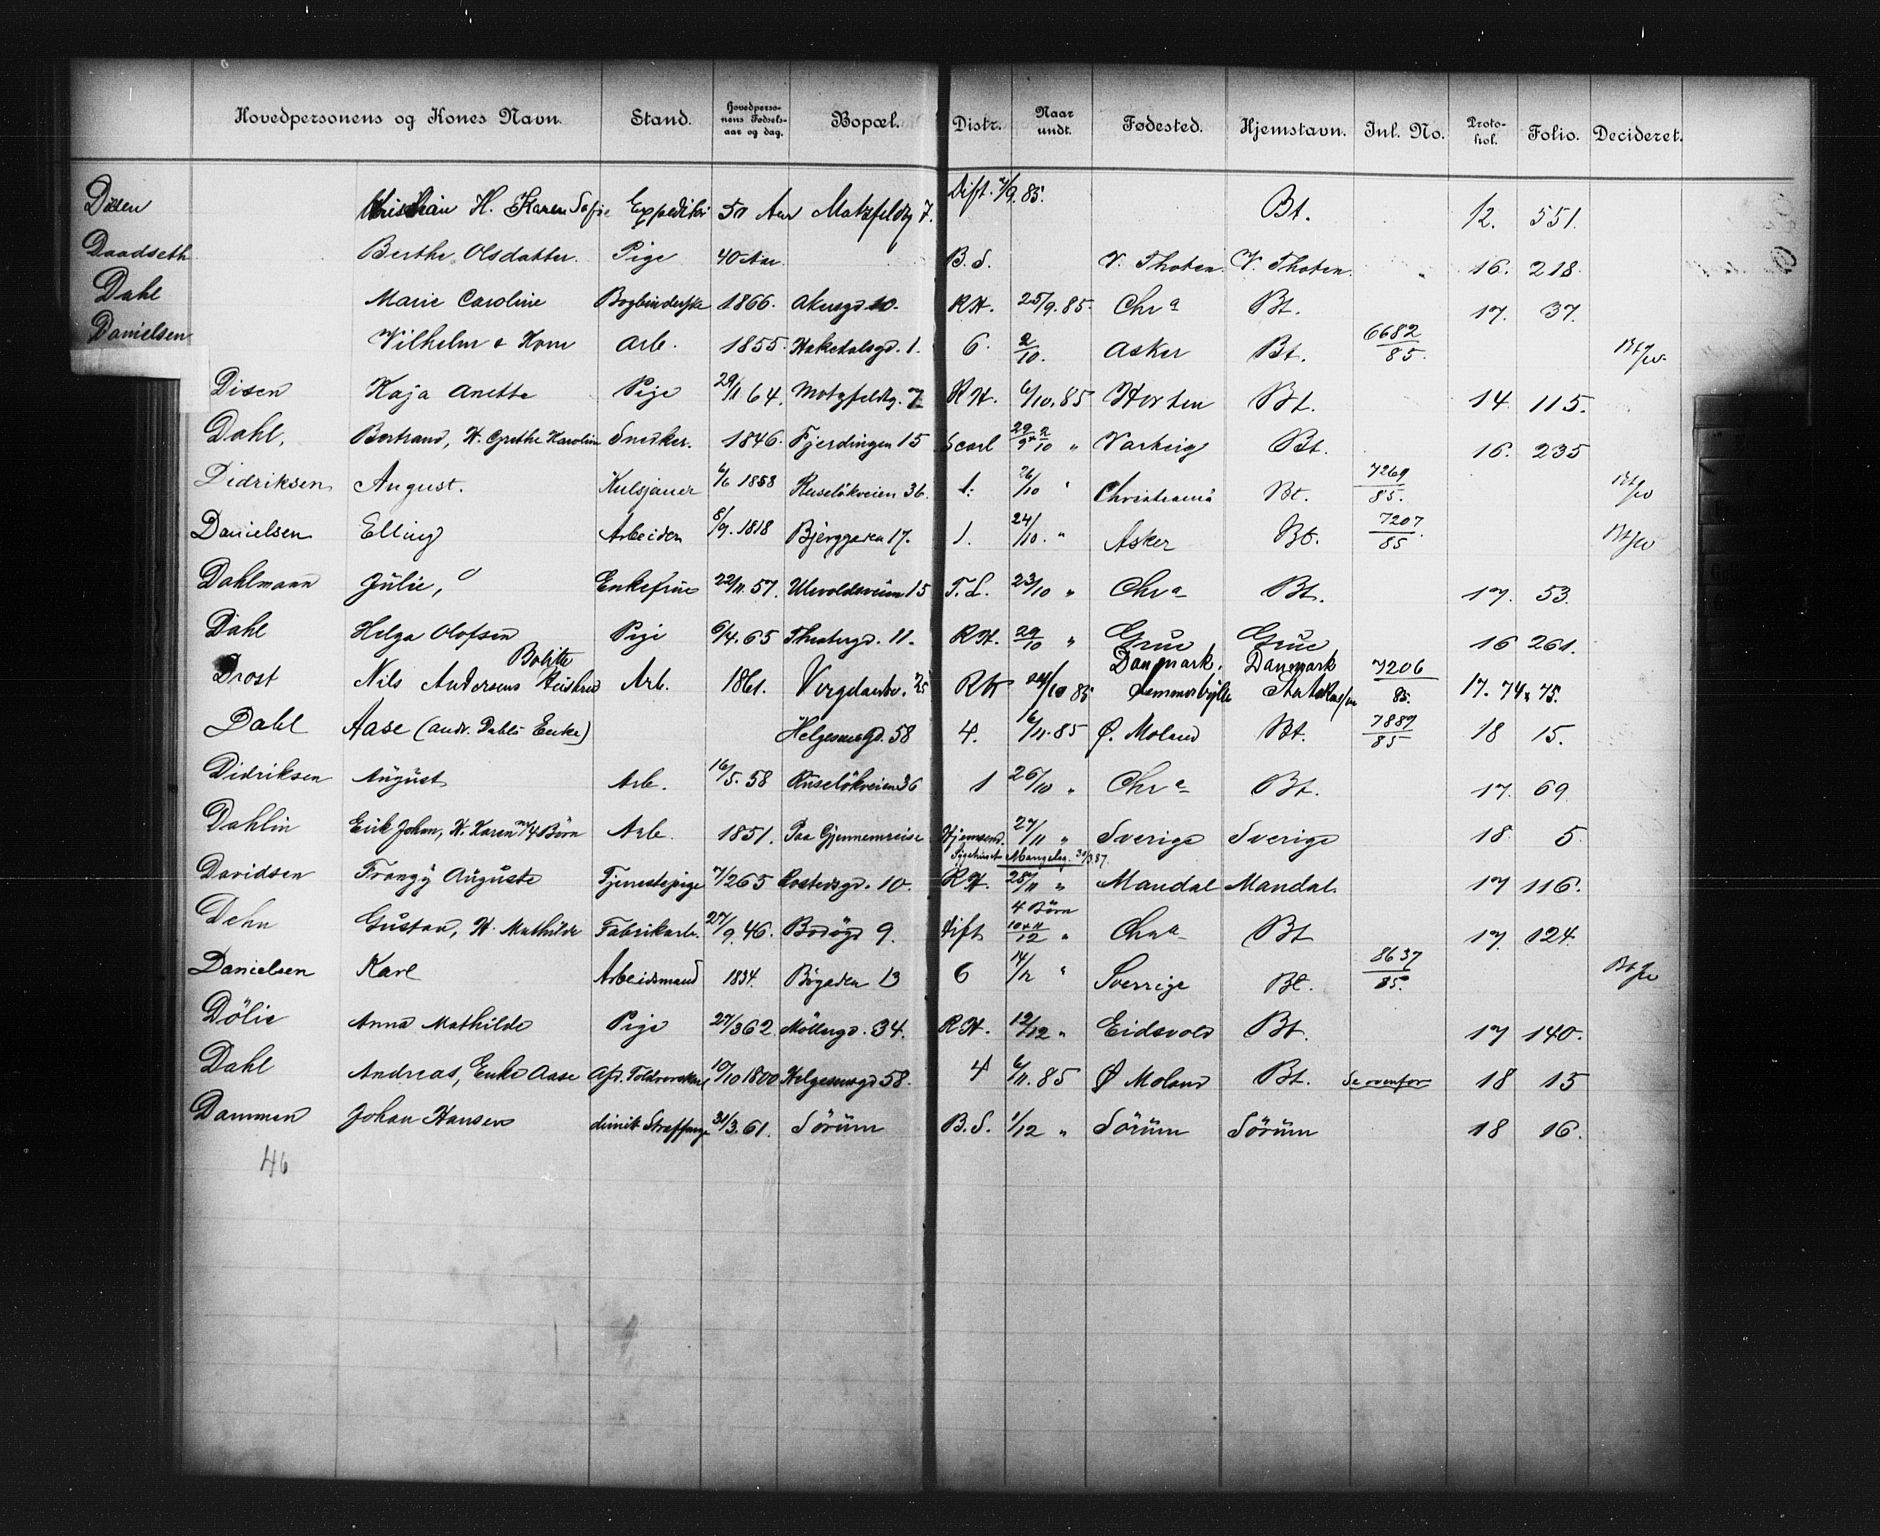 Hovedpersonens og Kones Navn. Stand. Hovedpersonens Fødselsaar og dag. Bopæl. Distr. Naar undt. Fødested. Hjemstavn. Inl. No. Protokol. Folio. Decideret.
Disen Kristian H. Karen Sofie Expeditør 50 Aar Motzfeldtg 7. Dift. 9. 85. Bt. 12. 551.
Daadseth Berthe Olsdatter. Pige 40 Aar B. S. V. Thoten V. Thoten 16. 218.
Dahl Marie Caroline Bogbinderske 1866. Akersgd 10. RH. 25/9. 85. Chr a Bt. 17. 37.
Danielsen Wilhelm & Kone Arb. 1855. Hakedalsgd. 1. 6. 2/10. Asker Bt. 6682/85.
Disen Kaja Anette Pige 29/11 64. Motzfeldtg. 7 RH. 6/10. 85 Horten Bt. 14. 115.
Dahl, Bertrand, H. Grethe Karoline Snedker. 1846. Fjerdingen 15 Scarl 29/9 + 2/10 " Varteig Bt. 16. 235
Didriksen August. Kulsjauer 6/6 1858 Ruseløkveien 36. 1. 26/10 " Christiania Bt. 7269/85.
Danielsen Elling Arbeider 8/9. 1818 Bjerggaden 17. 1. 24/10. " Asker Bt. 7207/85
Dahlmann Julie, Enkefrue 22/11. 57. Ulevoldsveien 15 T. L. 23/10 " Chr a Bt. 17. 53.
Dahl Helga Olofsen Pige 6/4. 65 Theatergd. 11. RH. 29/10 " Grue Grue 16 261.
Drost Nils Andersens Bolette Arb. 1861. 25 RH 10 85 Danmark. Danmark 7206/85. 17. 74 & 75.
Dahl Aase (Andr. Dahls Enke) Helgesensgd. 58 4. 6/11. 85 Ø. Moland Bt. 7889/85 18 15.
Didriksen August Arb. 16/5. 58 Ruseløkveien 36 1 26/10 " Chr a Bt. 17. 69.
Dahlin Erik Johan, H. Karen m/4 Børn Arb. 1851. Paa Gjennemreise Hjemsend. 27/11 " Sverige Sverige 18. 5.
Sygehuset Mangelsg. 31/3 87.
Davidsen Franzy Auguste Tjenestepige 7/2 65 Rostedsgd. 10. RH. 25/11 " Mandal Mandal 17 116.
4 Børn
Dehn Gustav, H. Mathilde Fabrikarb. 27/9. 46. Bodøgd 9. Dift 10+11/12 " Chr a Bt 17. 124.
Danielsen Karl Arbeidsmand 1834. Bøgaden 13 6 14/12 " Sverrige Bt. 8637/85.
Dølie Anna Mathilde Pige 27/3 62 Møllergd. 34. RH. 12/12 " Eidsvold Bt. 17 140.
Dahl Andreas, Enke Aase Afsk. Toldroerskar 10/10 1800 Helgesensgd 58. 4 6/11. 85 Ø Moland Bt. Se ovenfor 18 15
Dammen Johan Hansen dimit. Straffange 31/3. 61. Sörum B. S. 1/12 " Sörum Sörum 18 16.
46